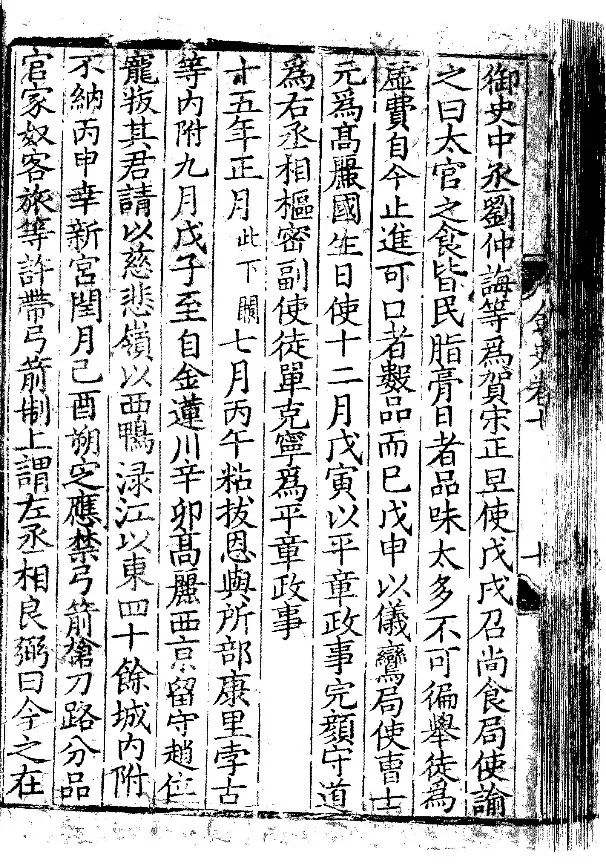 御史中丞劉仲誨等爲賀宋正旦使戊戌召尚食局使諭
之曰太官之食皆民脂膏日者品味太多不可徧舉徒爲
虛費自今止進可口者數品而已戊申以儀鸞局使曹士
元爲高麗國生日使十二月戊寅以平章政事完顏守道
爲右丞相樞密副使徒單克寧爲平章政事
十五年正月此下闕七月丙午粘拔恩與所部康里孛古
等內附九月戊子至自金蓮川辛卯高麗西京留守趙位
寵叛其君請以慈悲嶺以西鴨淥江以東四十餘城內附
不納丙申幸新宮閏月己酉朔定應禁弓箭槍刀路分品
官家奴客旅等許帶弓箭制上謂左丞相良弼曰今之在
金史卷十